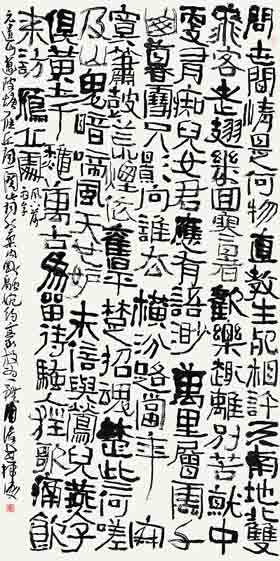 問世間情是何物直教生死相許天南地北雙
飛客老翅幾回寒暑歡樂趣離別苦就中
更有痴兒女君應有語渺萬里層雲千
山暮雪隻影向誰去橫汾路當年寂
寞簫鼓荒煙依舊平楚招魂楚些何嗟
及山鬼暗啼風天也妒未信與鶯兒燕子
俱黃土千龝萬古為留待騷人狂歌痛飲
來訪鴈丘處
元遺山邁陂塘雁丘詞